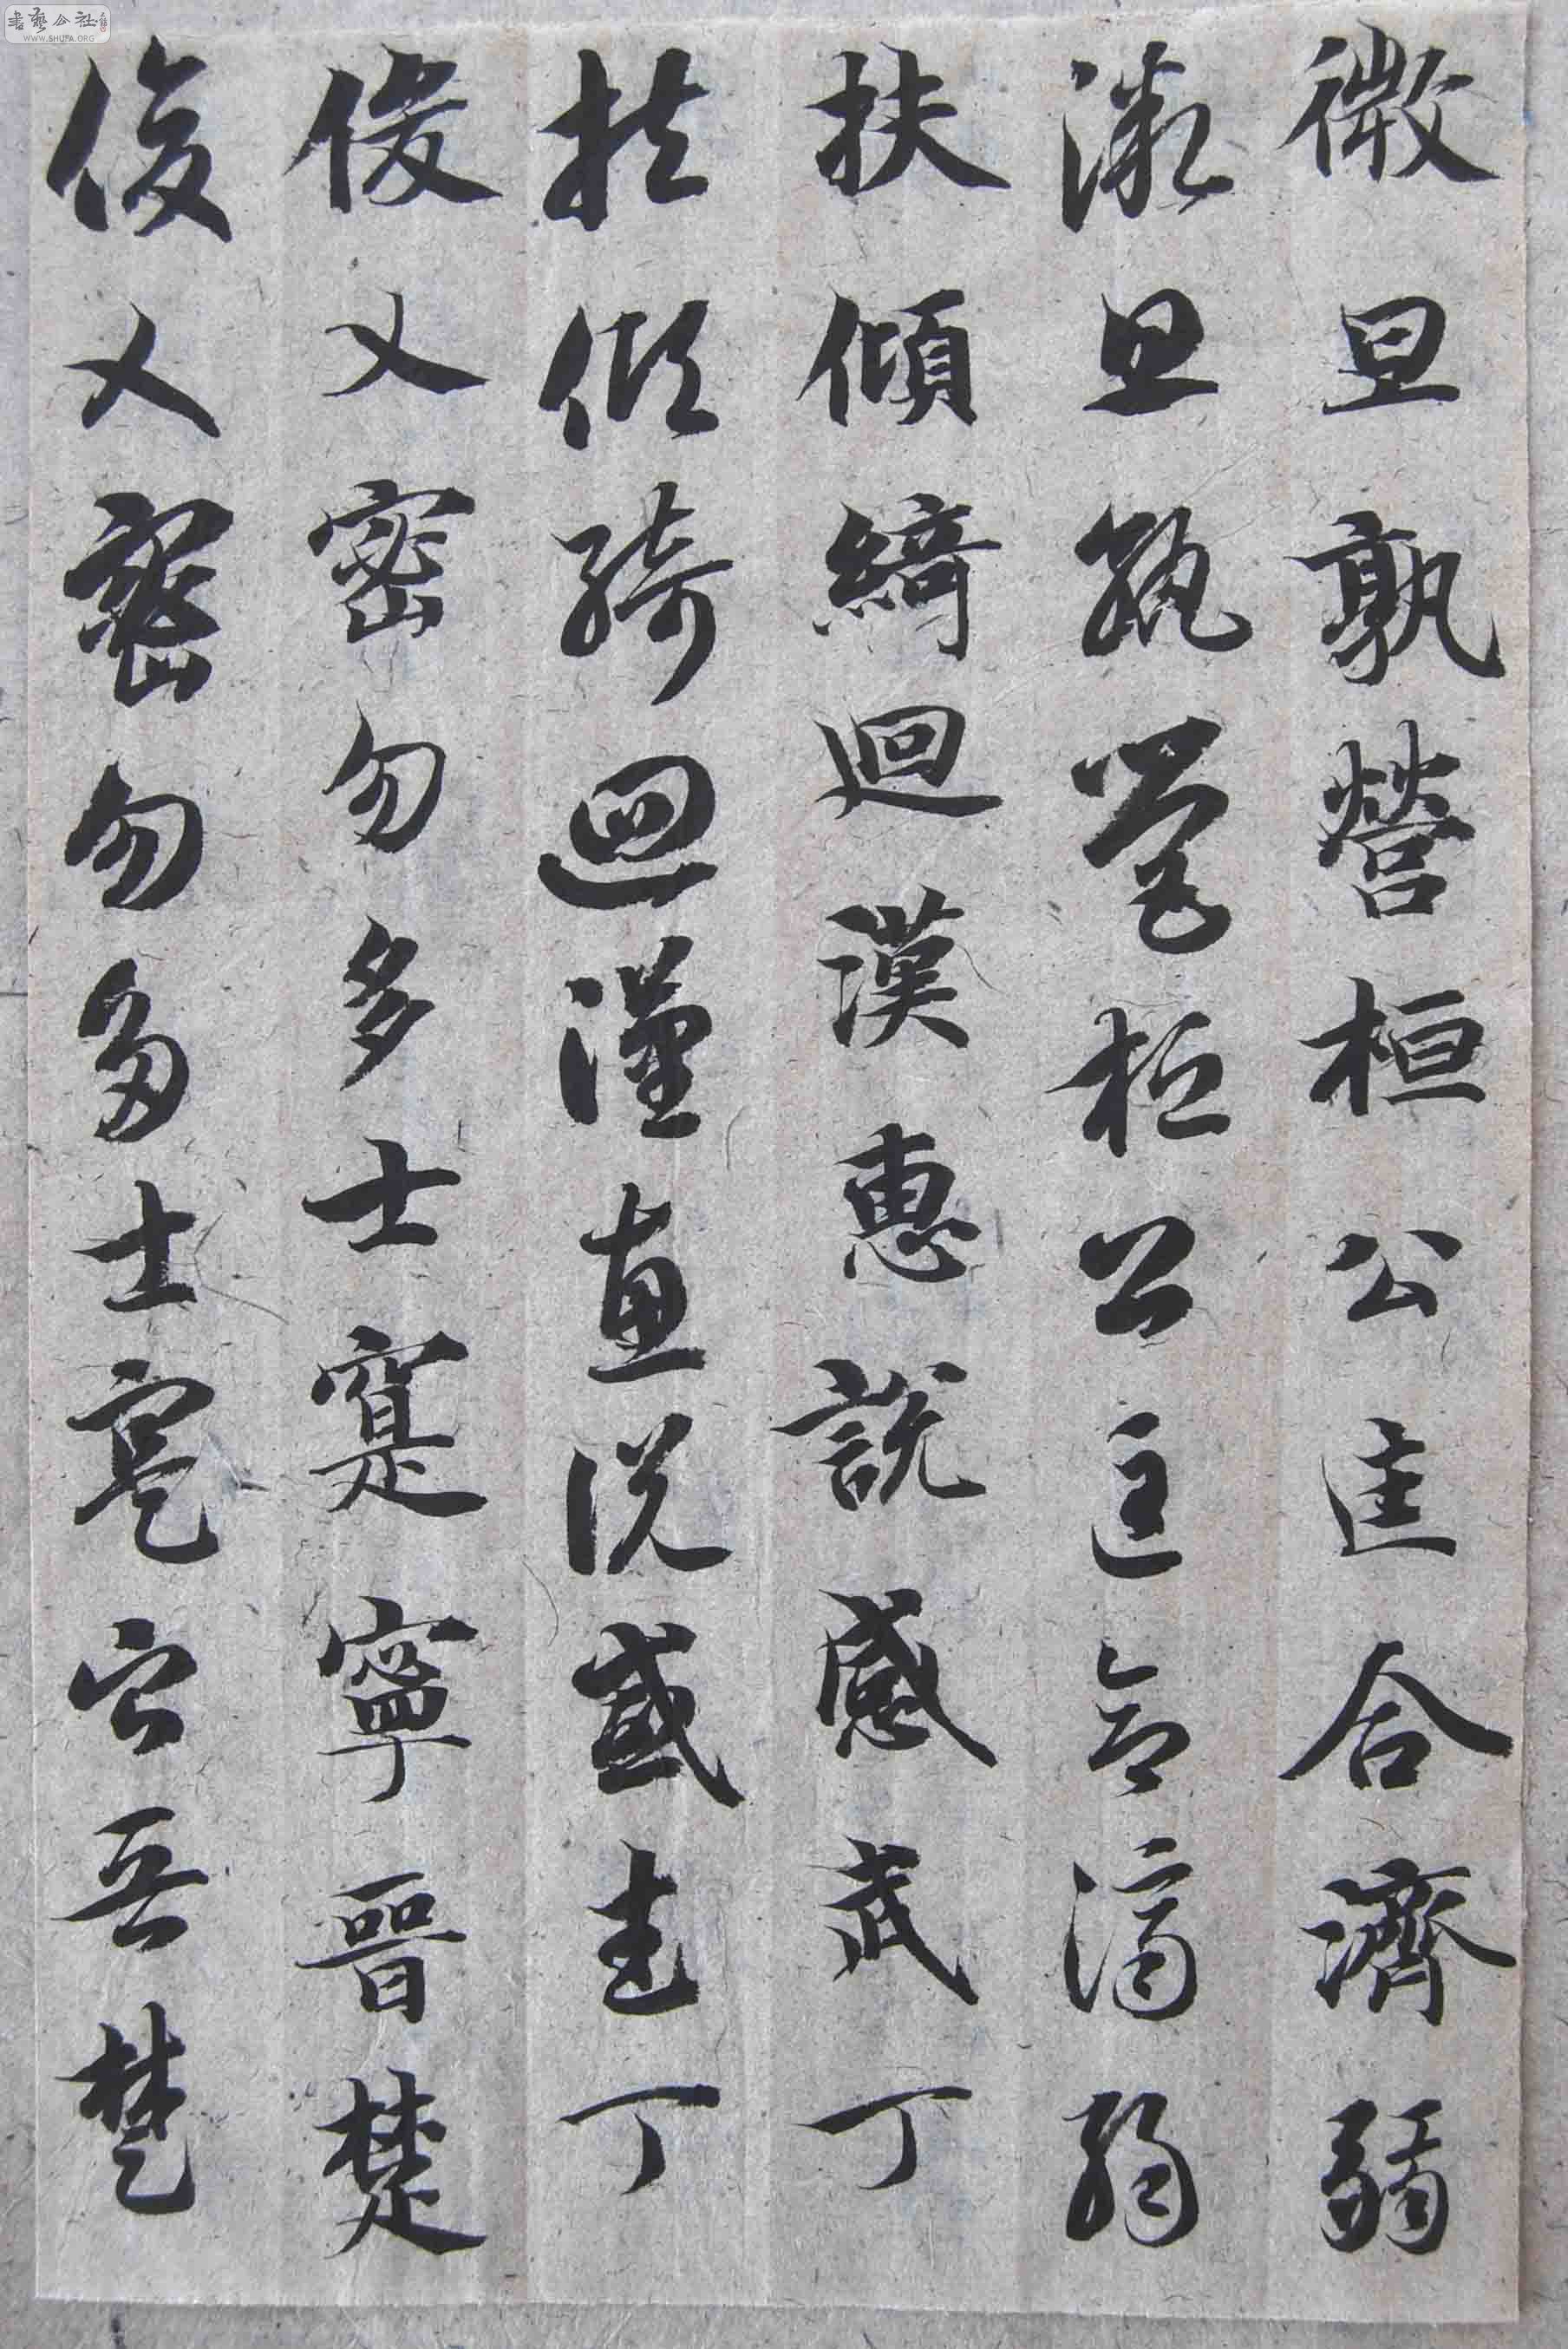 微旦孰營桓公匡合濟弱
微旦孰營桓公匡合濟弱
扶傾綺迴漢惠說感武丁
扶傾綺迴漢惠說感武丁
俊乂密勿多士寔寧晉楚
俊乂密勿多士寔寧晉楚
書藝公社
WWW.SHUFA.ORG